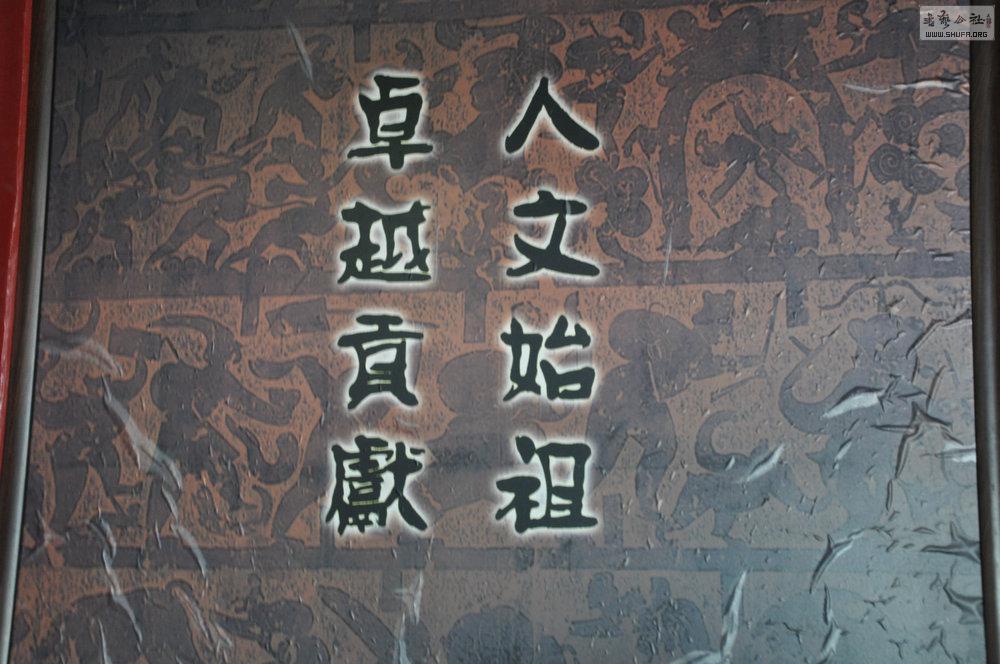 人文始祖
卓越貢獻
WWW.SHUFA.ORG